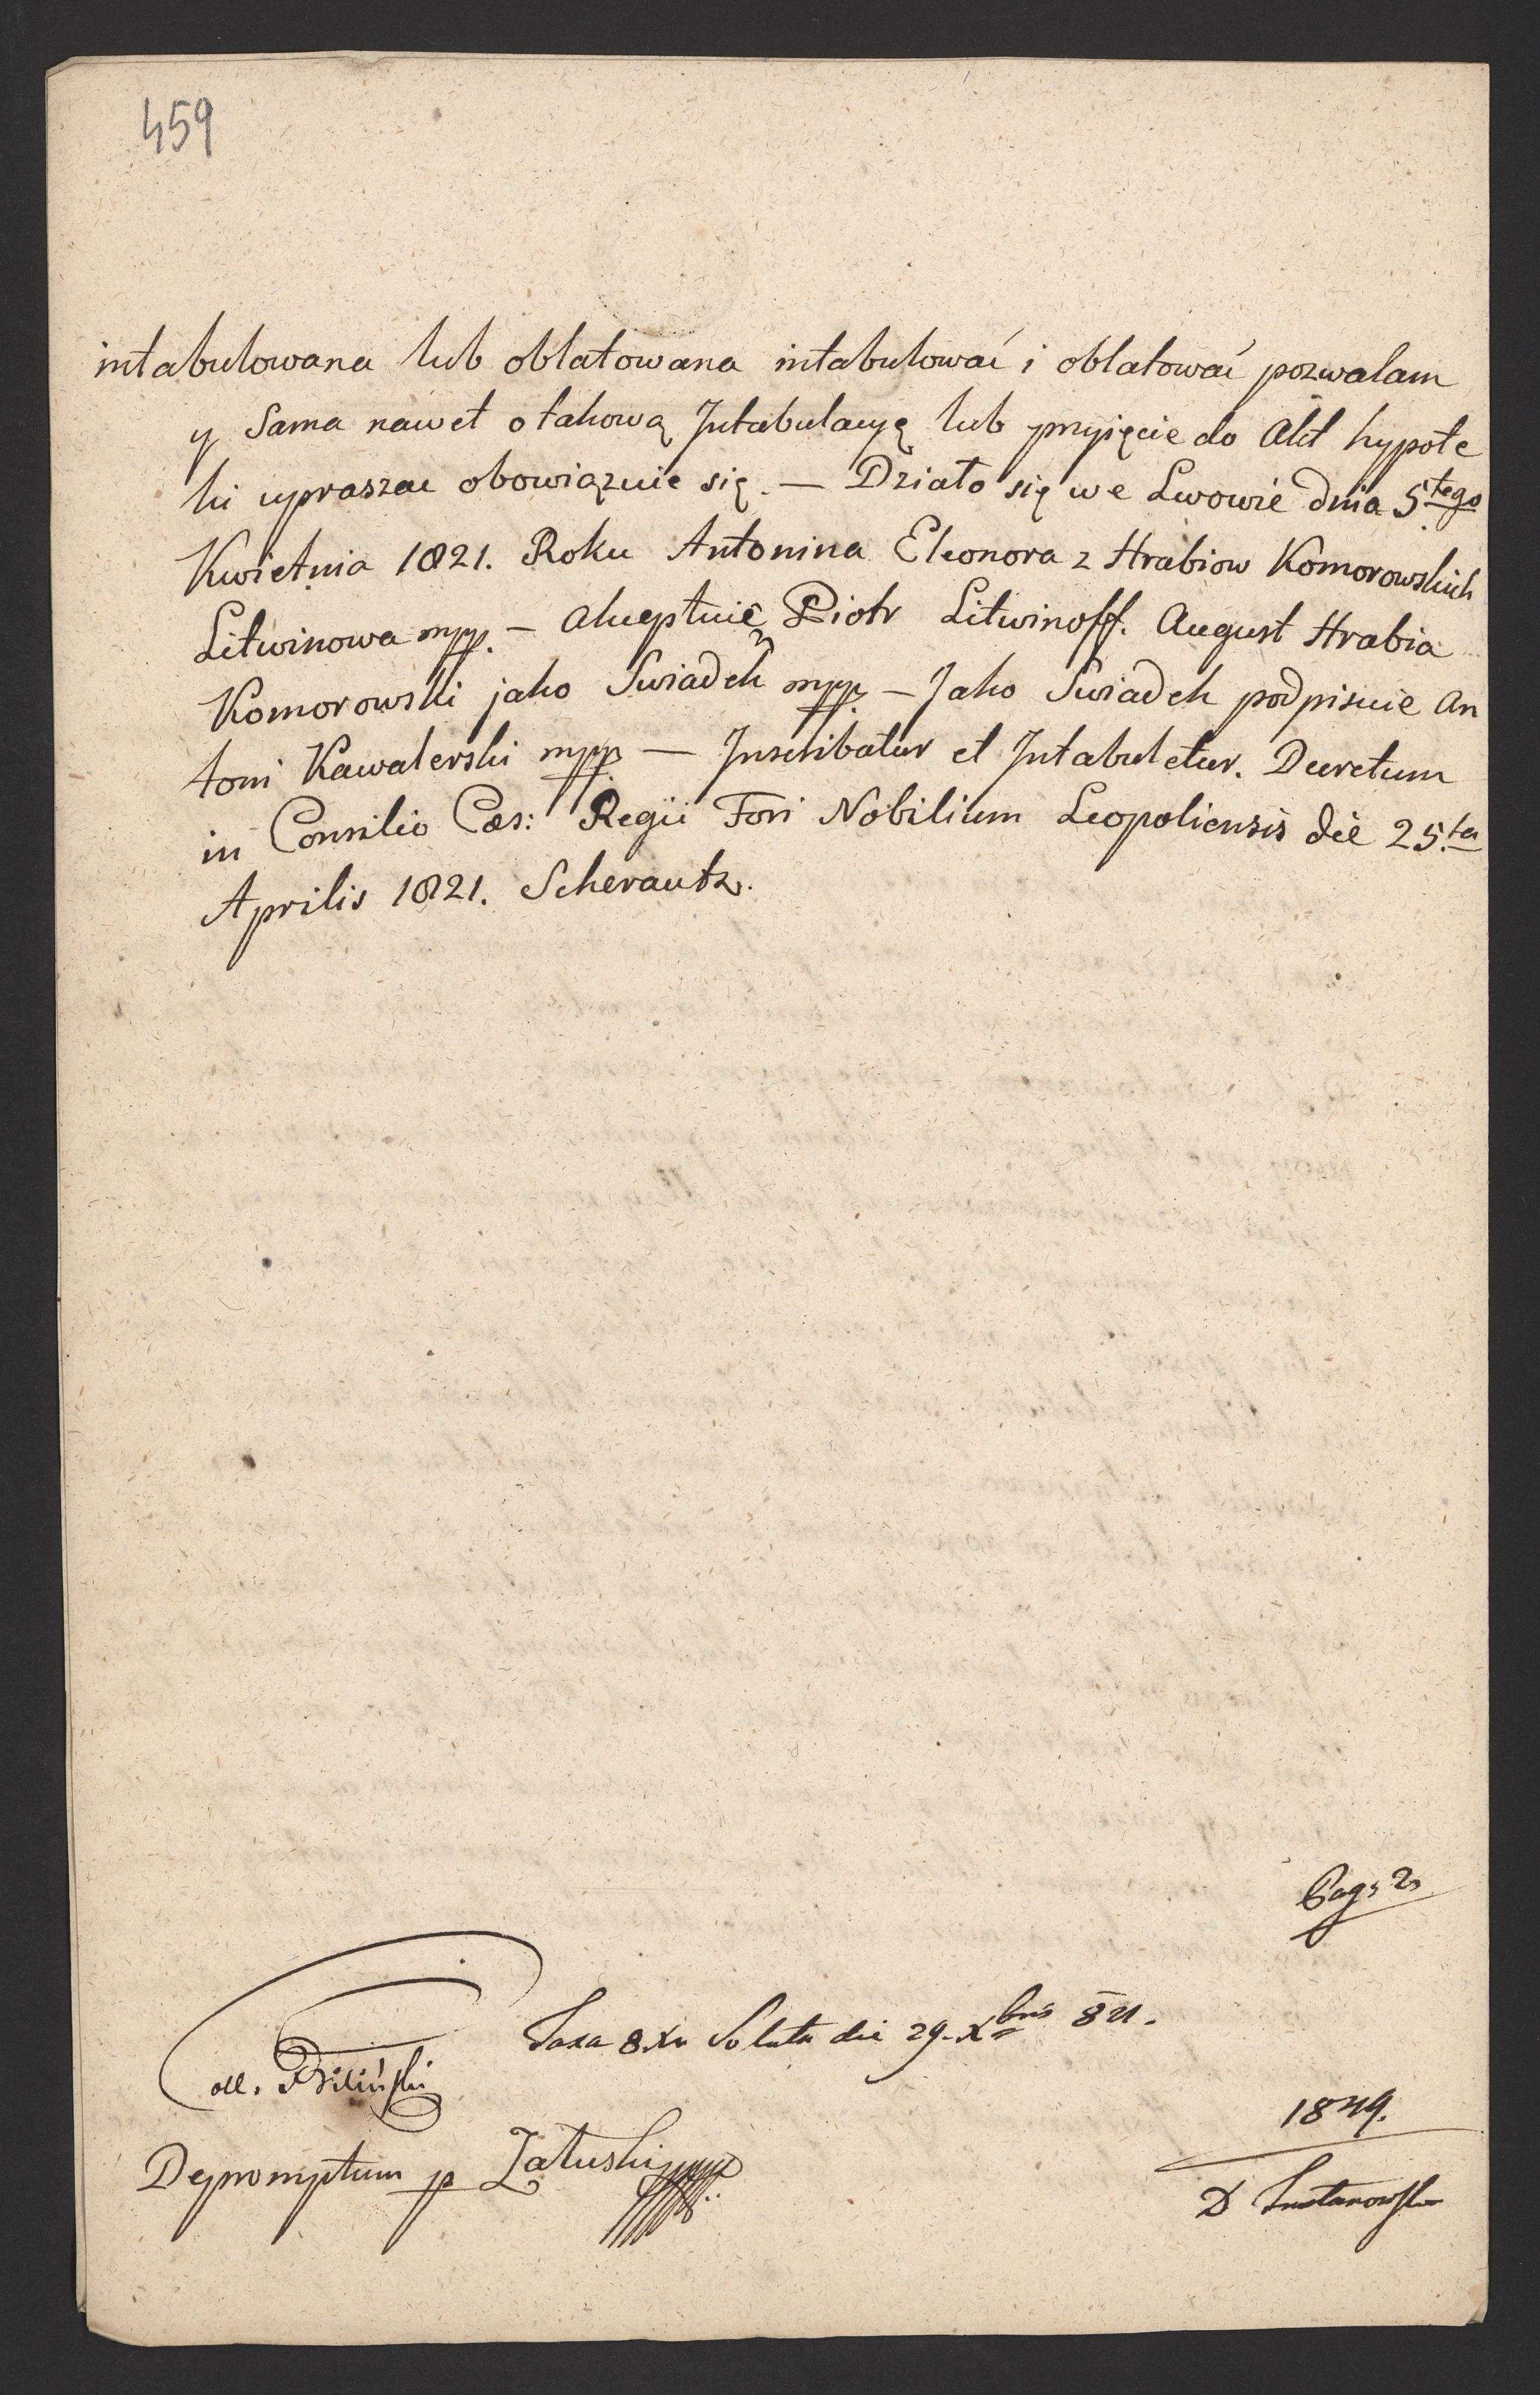 459
intabulowana lub oblatowana intabulować i oblatować pozwalam
y Sama nawet o takową Intabulacyą lub przyięcie do Akt hypote
ki upraszac obowiązuie się. — Działo się we Lwowie dnia 5tego
Kwietnia 1821. Roku Antonina Eleonora z Hrabiow Komorowskich
Litwinowa mpp. — Akceptuię Piotr Litwinoff. August Hrabia
Komorowski jako Swiadek mpp. — Jako Swiadek podpisuie An
toni Kawalerski mpp. — Inscribatur et Intabuletur. Decretum
in Consilio Cæs: Regii Fori Nobilium Leopoliensis die 25.ta
Aprilis 1821. Scherautz.
Pag. 2.
Taxa 8 Xr Soluta die 29. Xbris 821.
Biliński
1849.
Depromptum p Załuski mpp.
D